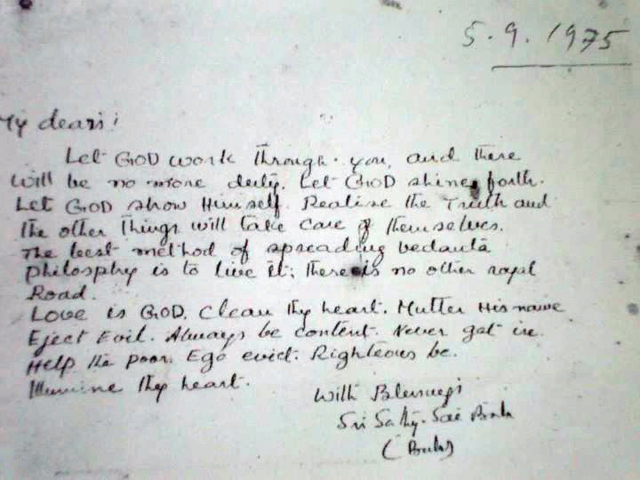 5.9.1975
My dears!
Let GOD work through you, and there
will be no more duty. Let GOD shine forth.
Let GOD show Himself. Realise the Truth and
the other things will take care of themselves.
The best method of spreading vedanta
philosphy is to live it; there is no other royal
Road.
Love is GOD. Clean thy heart. Mutter His name
Eject Evil. Always be content. Never get in
Help the poor. Ego evict. Righteous be.
Illumine thy heart.
With Blessings
Sri Sathya Sai Baba
(Baba)